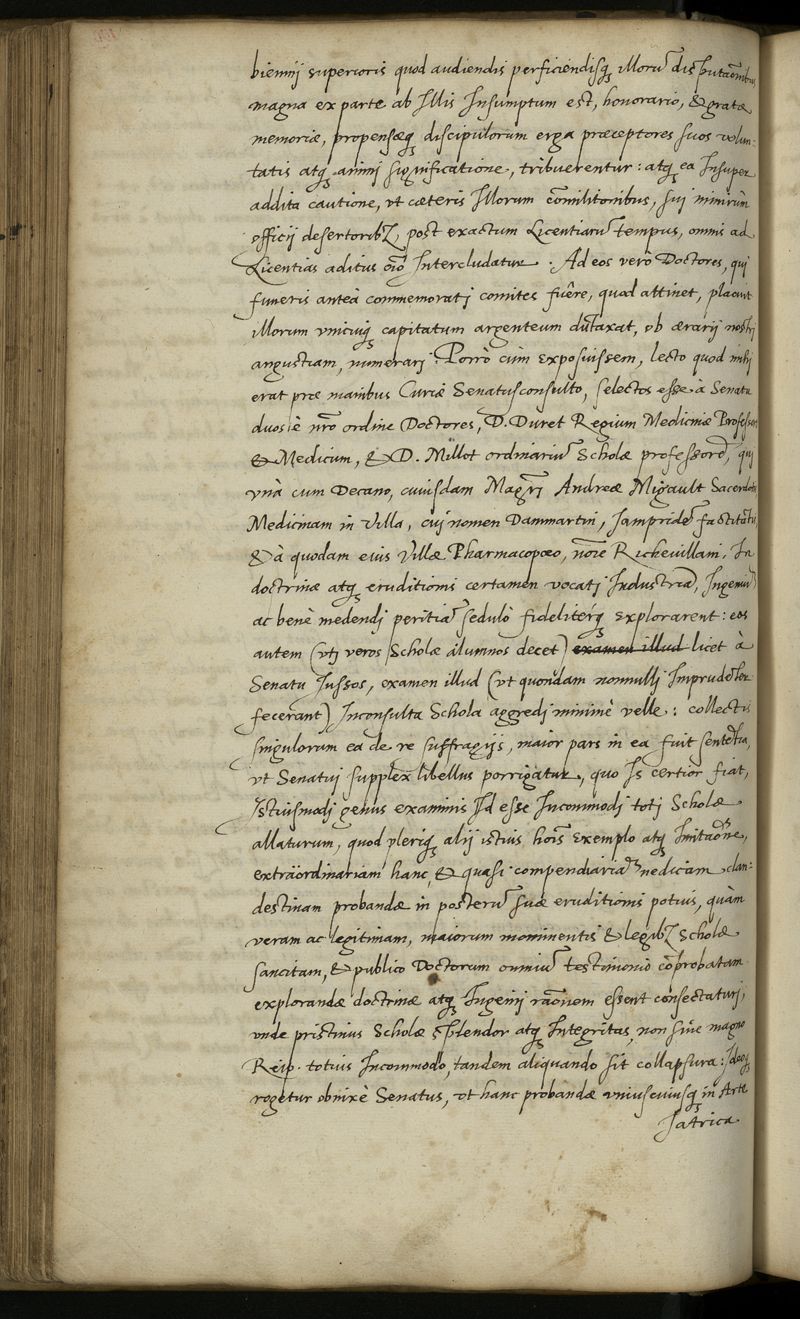 biennij superioris quod audiendis perficiendisq; illorū disputaōnibus
magna ex parte ab Illis Insumptum est, honorario, & gratæ
memoriæ, propensæq; discipulorum erga præceptores suos volun:
tatis atq; animj significatione, tribuerentur: atq; ea Insuper
addita cautione, vt cæteris Illorum cōmilitonibus, suj nimirùm
officij desertorib; post exactum Licentiarū tempus, omnis ad
Licentias aditus oīō Intercludatur. Ad eos verò Doctores, quj
funeris anteà commemoratj comites fuêre, quod attinet, placuit
illorum vnicuiq; capitatum argenteum dūtaxat, ob ærarij nostrj
angustiam, numerarj. Porrò cùm exposuissem, lecto quod mihj
erat præ manibus Curiæ Senatusconsulto, selectos esse à Senatu
duos è nr̄o ordine Doctores, D. Duret Regium Medicinæ Professorem
& Medicum, & D. Millot ordinariū Scholæ professorē, quj
vnà cum Decano, cuiusdam Magr̄j Andreæ Migault Sacerdotis
Medicinam in Villa, cuj nomen Dammartin, Iampridē factitātis
& à quodam eius Villæ Pharmacopœo, nōīe Richevillain, In
doctrinæ atq; eruditionis certamen vocatj Industriā, Ingeniū
ac benè medendj peritiā sedulò fideliterq; explorarent: eos
autem (vtj veros Scholæ alumnos decet) examen illud licet à
Senatu Iussos, examen illud (vt quondam nonnullj Imprudēter
fecerant) Inconsulta Schola aggredj minimè velle: collectis
singulorum ea de re suffragijs, maior pars in ea fuit sentētia,
vt Senatuj supplex libellus porrigatur, quo Is certior fiat,
Istiusmodj genus examinis Id esse Incommodj totj Scholæ
allaturum, quod pleriq; alij istius hoīs exemplo atq; Imitaōne,
extraördinariam hanc, & quasi compendiariā medicam clan:
destinam probandæ in posterū suæ eruditionis potius, quàm
veram ac legitimam, maiorum monimentis & legib; Scholæ
sancitam, & publico Doctorum omniū testimonio cōprobatam
explorandæ doctrinæ atq; Ingenij raōnem essent consectaturj,
vnde pristinus Scholæ splendor atq; Integritas, non sine magno
Reip. totius Incommodo, tandem aliquando sit collapsura: Ideoq;
rogetur obnixè Senatus, vt hanc probandæ vniuscuiusq; in Arte
Iatrica